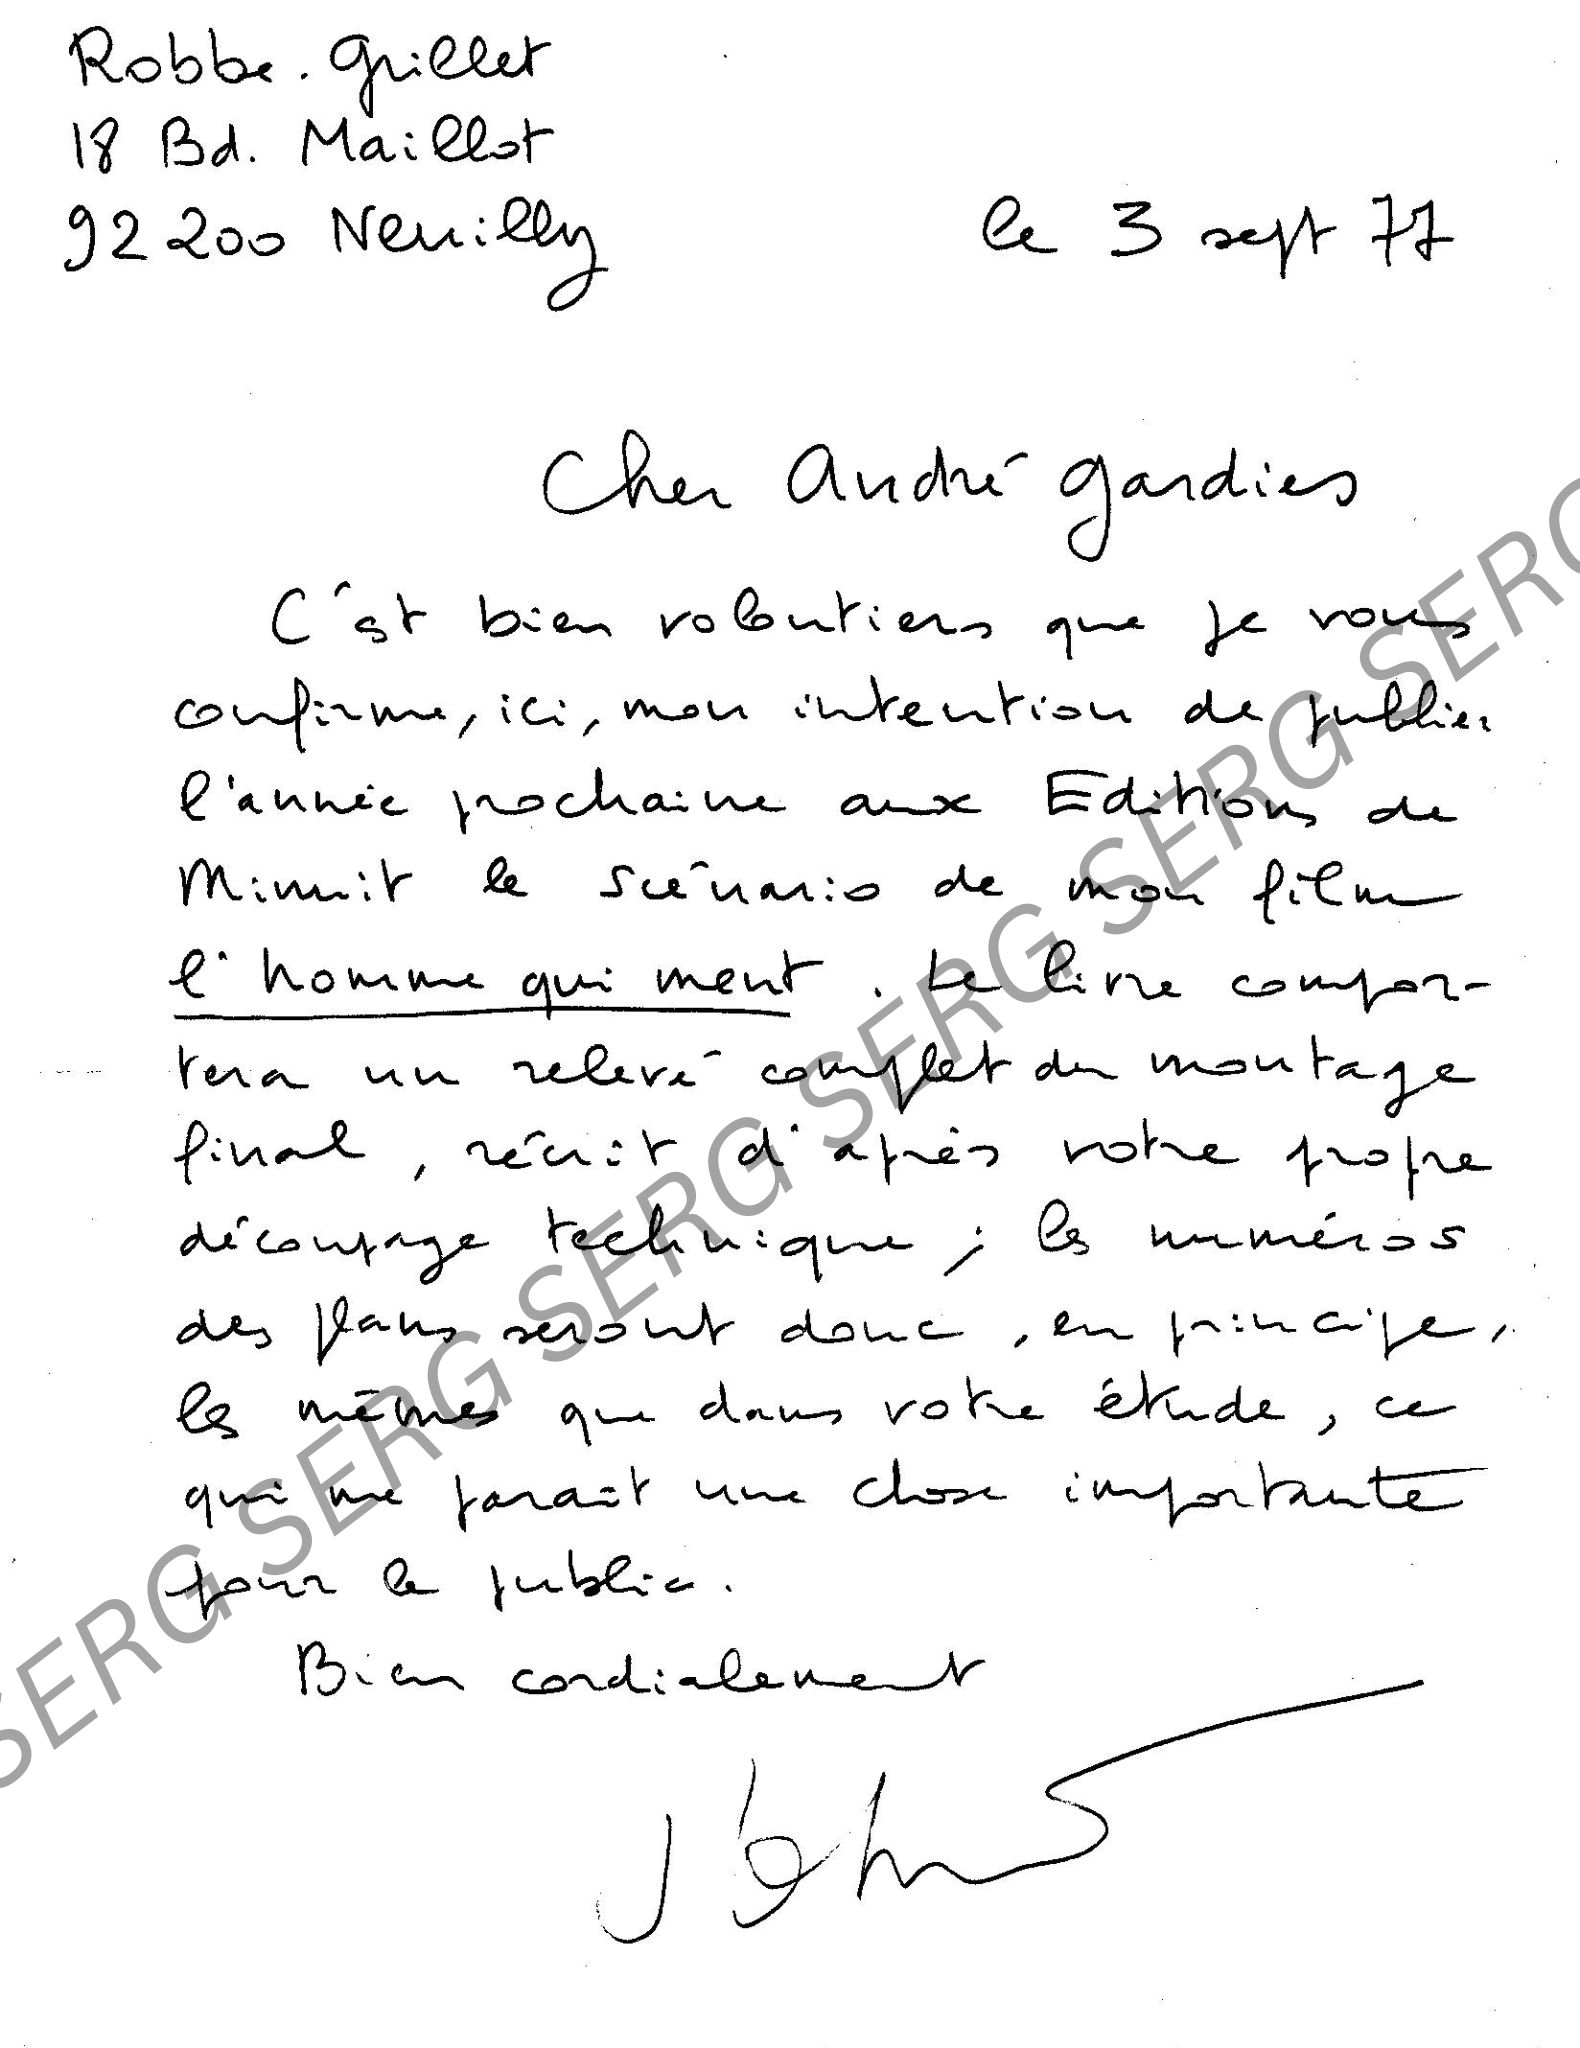 Robbe-Grillet
18 Bd. Maillot
92200 Neuilly
le 3 sept 77
Cher André Gardies
C'est bien volontiers que je vous
confirme, ici, mon intention de publier
l'année prochaine aux Editions de
Minuit le scénario de mon film
l'homme qui ment. Le livre compor-
tera un relevé complet du montage
final, récrit d'après votre propre
découpage technique ; les numéros
des plans seront donc, en principe,
les mêmes que dans votre étude, ce
qui me parait une chose importante
pour le public.
Bien cordialement
SERG SERG SERG SERG SERG SERG SERG SERG